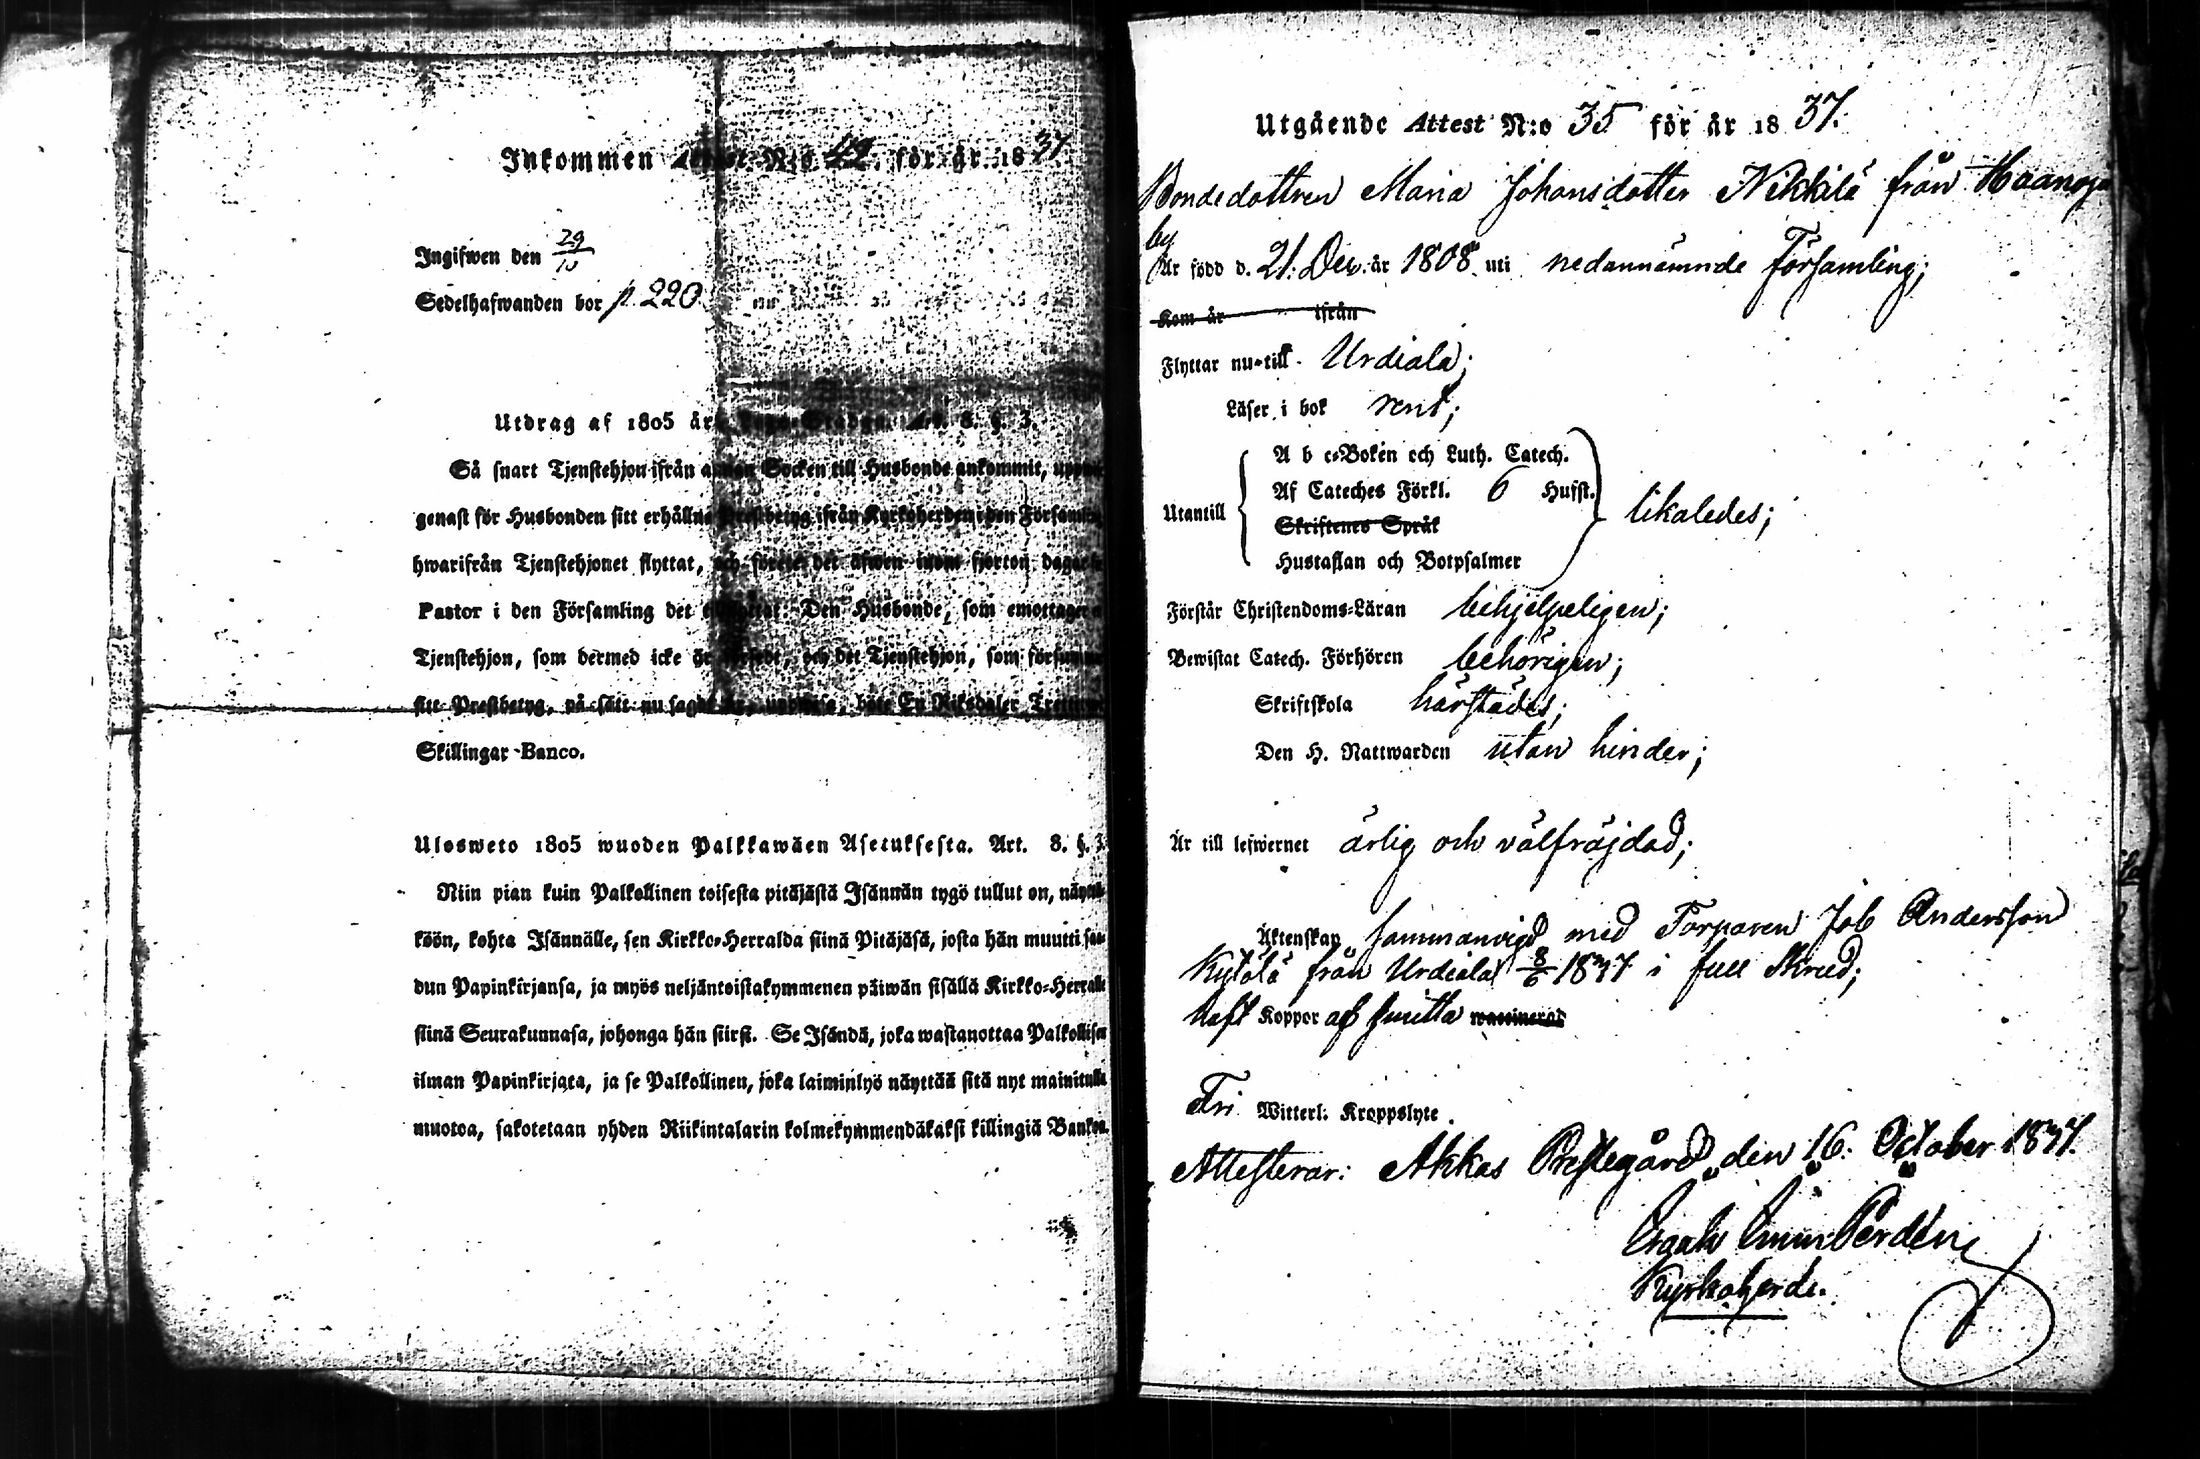 Inkommen Attest N:o 49. för år 1837
Ingifwen den 29/10
Sedelhafwanden bor p. 220.
Utdrag af 1805 års Lego-Stadga. Art. 8. §. 3.
Så snart Tjenstehjon ifrån annan Socken till Husbonde ankommit,
genast för Husbonden sitt erhållna Prestbetyg ifrån Kyrkoherden i den Församling
hwarifrån Tjenstehjonet flyttat, och förete det äfwen inom fjorton dagar
Pastor i den Församling det tillflyttat. Den Husbonde, som emottager
Tjenstehjon, som dermed icke är försedt, och det Tjenstehjon, som försummar
sitt Prestbetyg, på sätt nu sagdt är, upwisa, böte En Riksdaler Trettiotvå
Skillingar Banco.
Ulosweto 1805 wuoden Palkkawäen Asetuksesta. Art. 8. §. 3.
Niin pian kuin Palkollinen toisesta pitäjästä Isännän tygö tullut on, näyttä-
köön, kohta Isännälle, sen Kirkko-Herralda siinä Pitäjäsä, josta hän muutti saa-
dun Papinkirjansa, ja myös neljäntoistakymmenen päiwän sisällä Kirkko-Herralle
siinä Seurakunnasa, johonga hän siirsi. Se Isändä, joka wastanottaa Palkollisen
ilman Papinkirjata, ja se Palkollinen, joka laiminlyö näyttää sitä nyt mainitulla
muotoa, sakotetaan yhden Riikintalarin kolmekymmendäkaksi killingiä Bankoa.
Utgående Attest N:o 35 för år 1837.
Bondedottren Maria Johansdotter Nikkilä från Haanoja
by
Är född d. 21. Dec. år 1808 uti nedannämnde Församling;
Kom år ifrån
Flyttar nu till Urdiala;
Läser i bok rent;
A b c-Boken och Luth. Catech.
Af Cateches Förkl. 6 Hufst.
Utantill likaledes;
Skriftenes Språk
Hustaflan och Botpsalmer
Förstår Christendoms-Läran behjelpeligen;
Bewistat Catech. Förhören behörigen;
Skriftskola härstädes;
Den H. Nattwarden utan hinder;
Är till lefwernet ärlig och välfräjdad;
Äktenskap sammanvigd med Torparen Job Andersson
Kylölä från Urdiala 8/6 1837 i full skrud;
haft Koppor af smitta waccinerad
Fri Witterl. Kroppslyte.
Attesterar: Akkas Prestegård den 16. October 1837.
Kyrkoherde.